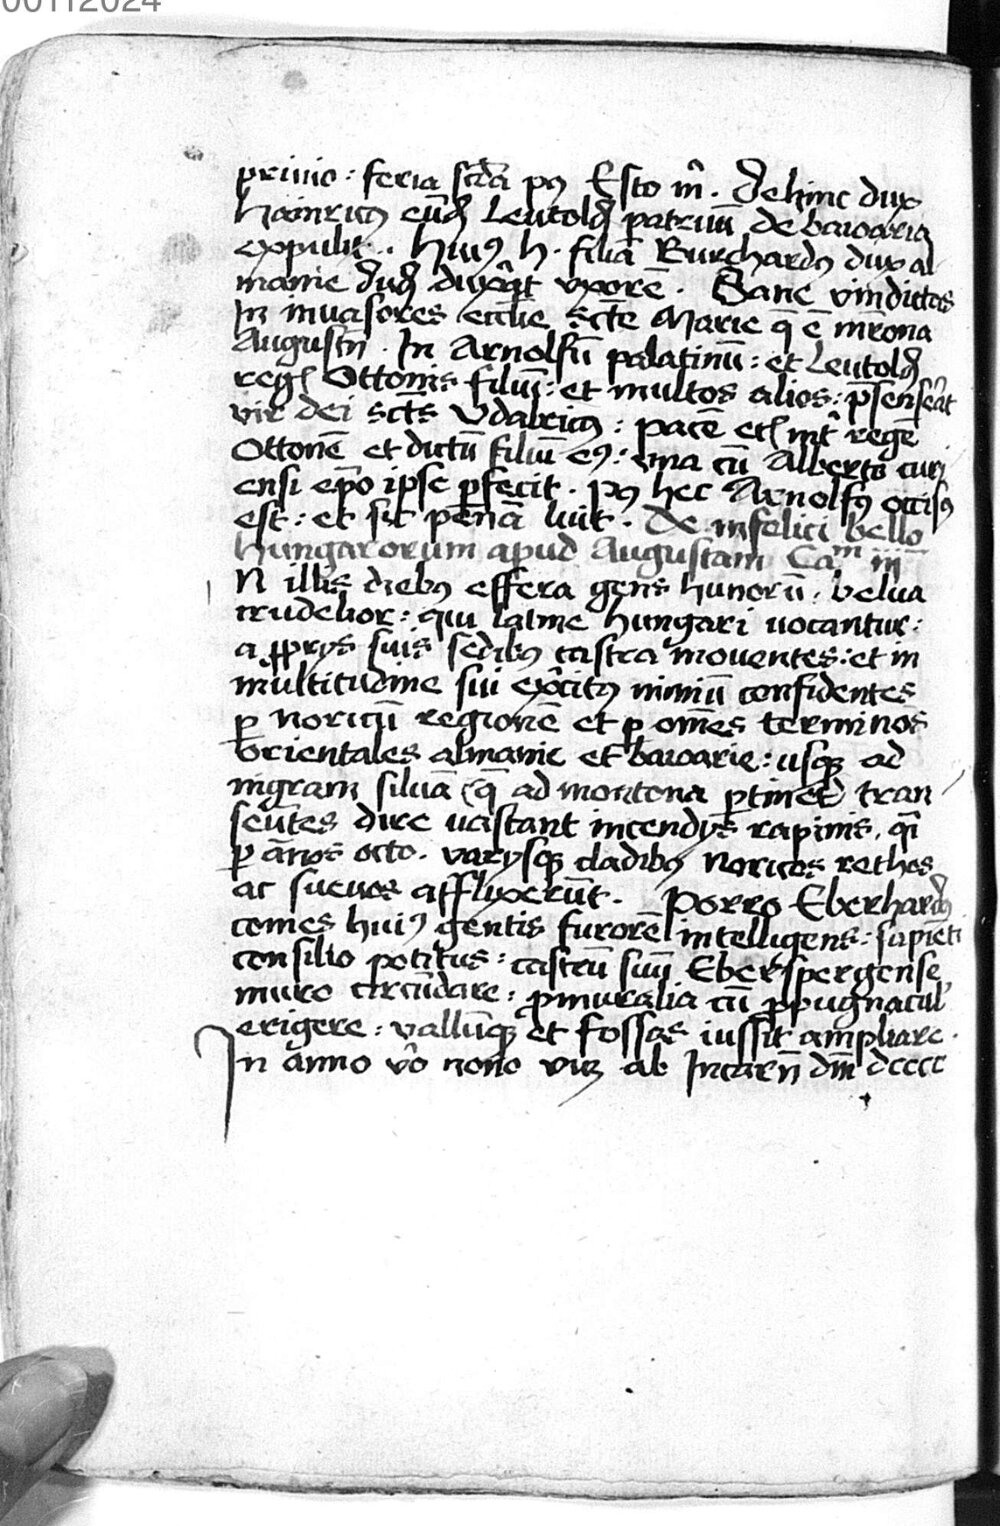 00112024
primo : feria scd̄a pꝯ Esto m̄ . Dehinc dux
Hainricꝯ eūdē Leutoldū patruū de baioaria
expulit . Huiꝯ h . filiā Burchardꝯ dux al
manie duxerat vxorē . Sane vindictas
In inuasores ecclie scte Marie q̄ ē mr̄ona
Augustn̄ . In Arnolfū palatinū : et Leutoldū
regis Ottonis filiū : et multos alios : p̄senserat
vir dei sctꝰs Vdalricꝯ : pacē etiā int̄ regē
Ottonē et dictū filiū eꝯ : vna cū Alberto curi
ensi ep̄o ipse ꝑfecit . Pꝯ hec Arnolfꝯ occisꝯ
est : et sic penā luit . De infelici bello
hungarorum apud Augustam Cam iij
N illis diebꝯ effera gens hunorū . belua
crudelior : qui latine hungari uocantur :
a ꝓprijs suis sedibꝯ castra mouentes : et in
multitudine sui exercitꝯ nimiū confidentes
ꝑ noricū regionē et ꝑ om̄es terminos
orientales almanie et baioarie : usqꝫ ad
nigram siluā (q̄ ad montena ꝑtinet) tran
seūtes dire uastant incendijs rapinis . q̄
ꝑ ānos octo . varijsqꝫ cladibꝯ noricos rethos
ac sueuos afflixerūt . Porro Eberhardꝯ
comes huiꝯ gentis furorē intelligens : sapiēti
consilio potitus : castrū suū Eberspergense
muro circūdare : promuralia cū ꝓpugnacul'
erigere : vallūqꝫ et fossas iussit ampliare .
In anno v̄o nono viꝫ ab Incarn̄ dm̄ dcccc